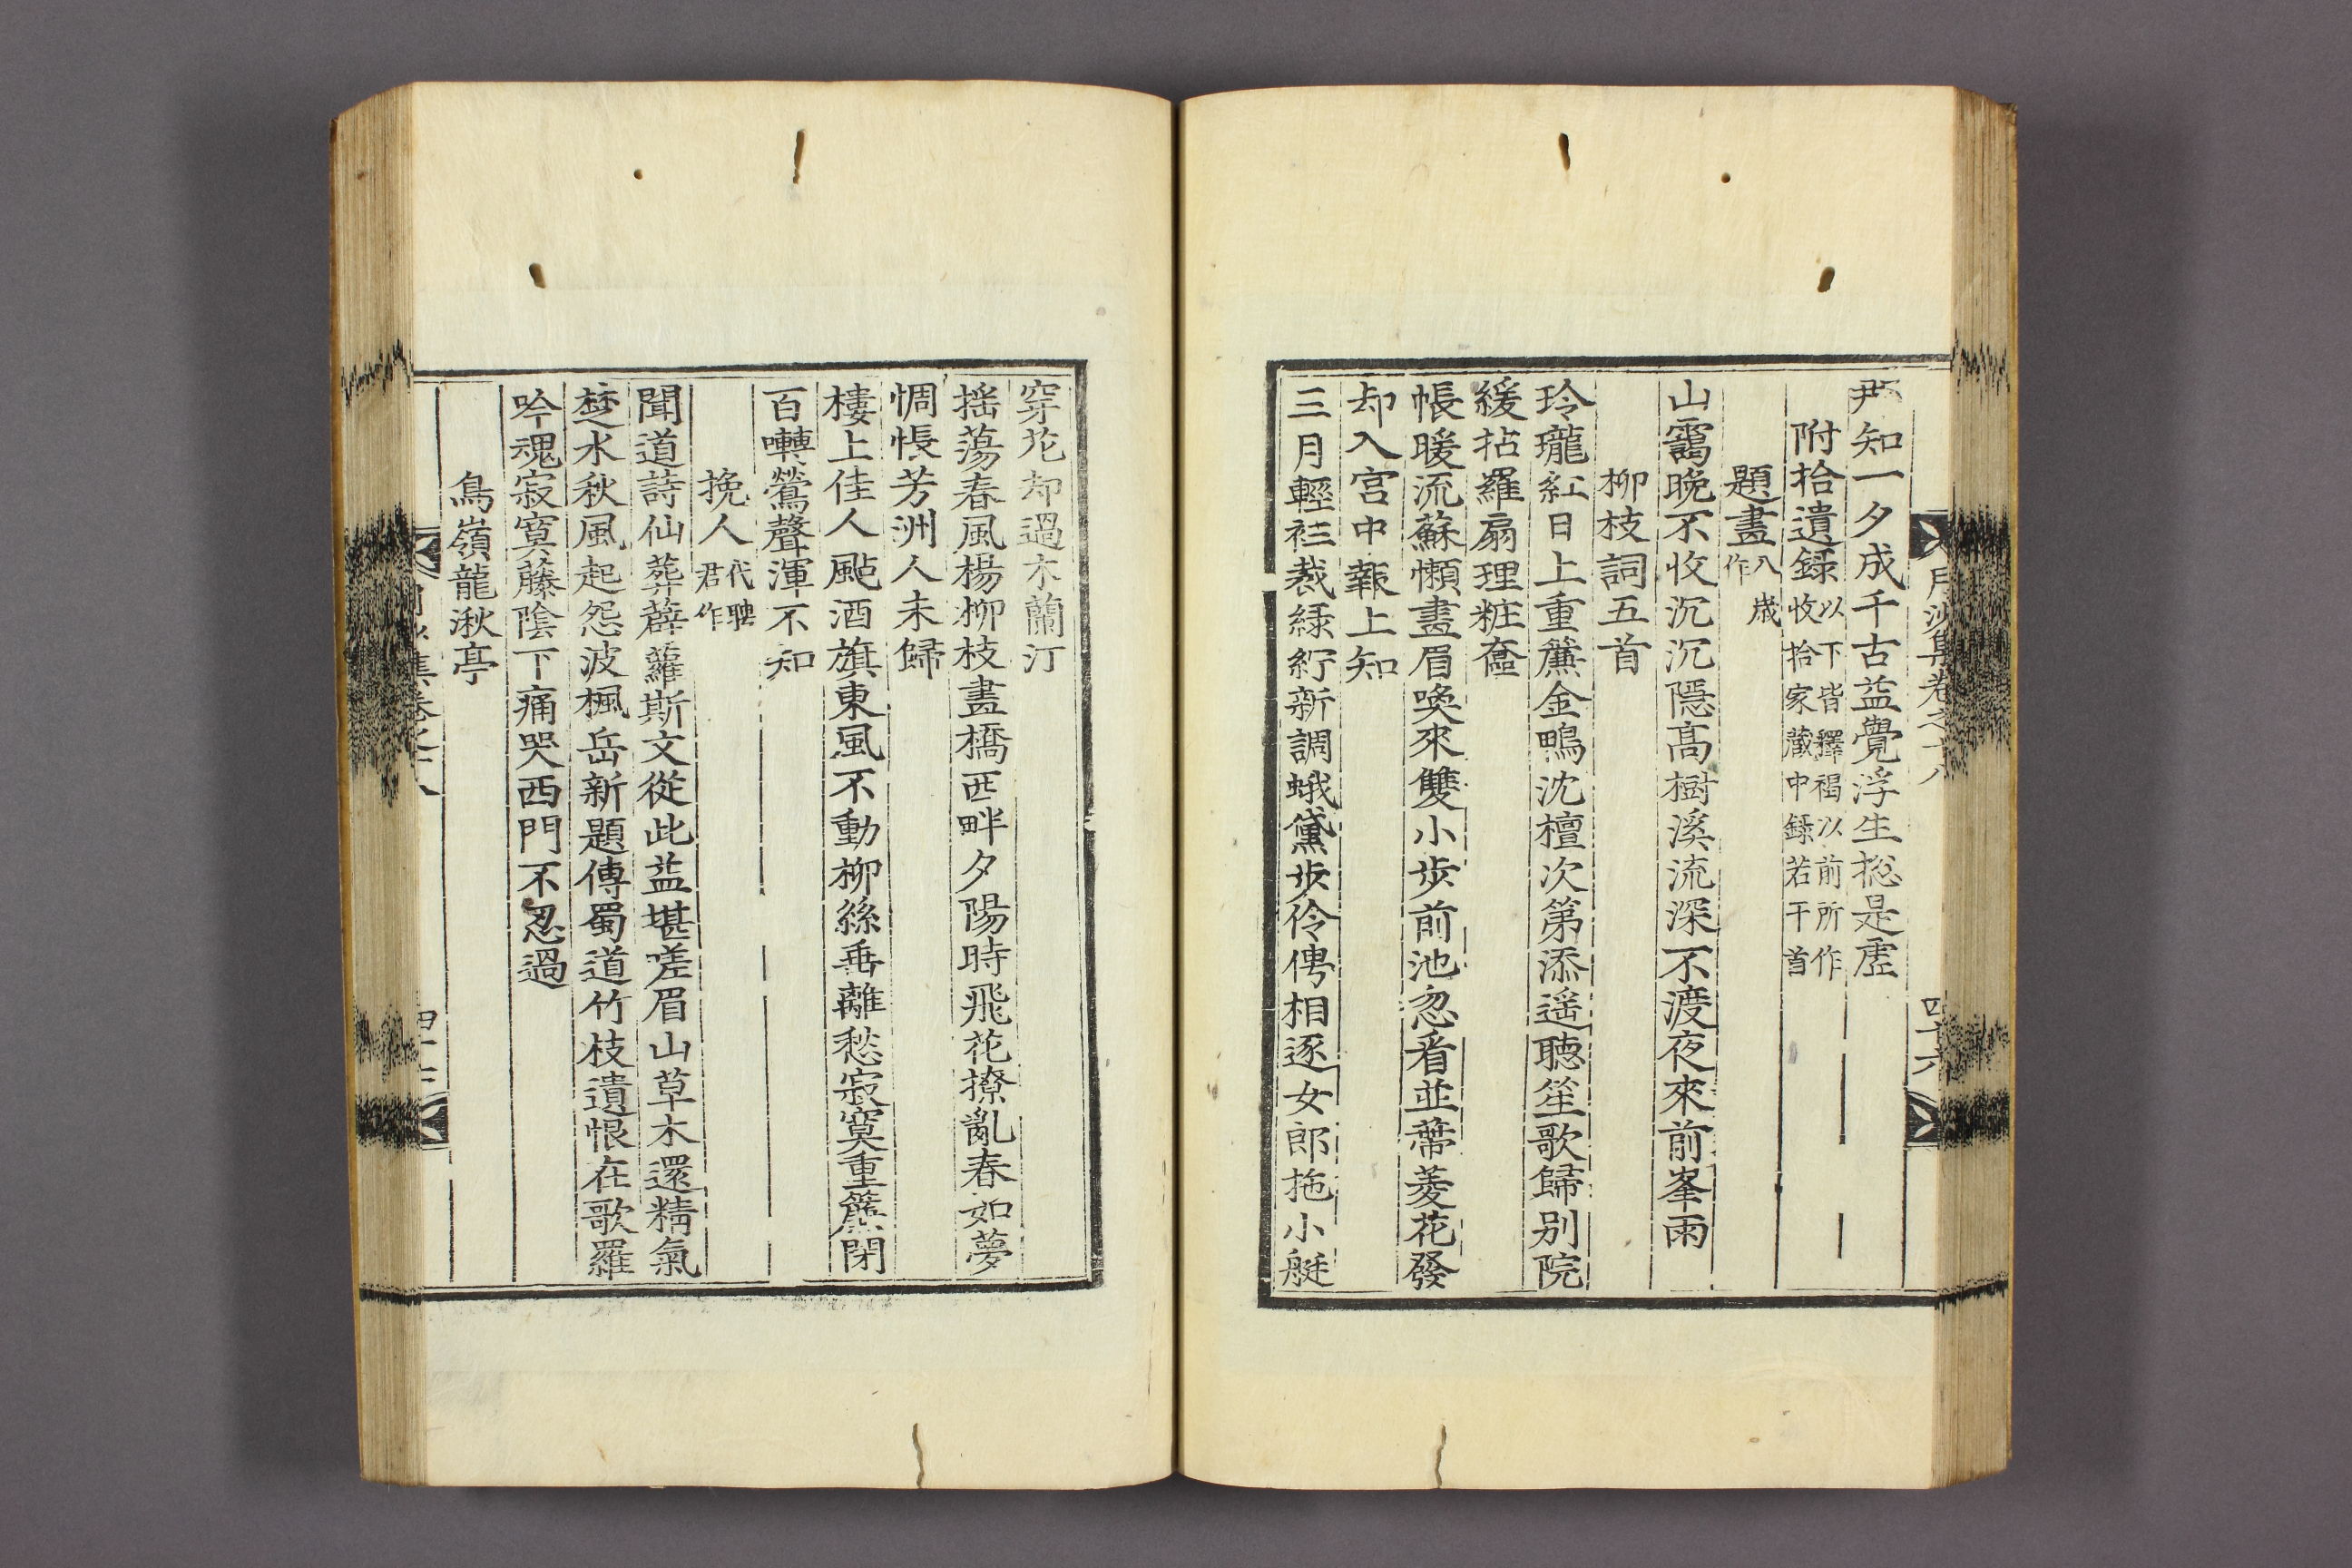 月沙集卷之十八
四十六
那知一夕成千古益覺浮生摠是虛
附拾遺錄以下皆釋褐以前所作收拾家藏中錄若干首
題畫八歲作
山靄晩不收沉沉隱高樹溪流深不渡夜來前峯雨
柳枝詞五首
玲瓏紅日上重簾金鴨沈檀次第添遥聽笙歌歸別院
緩拈羅扇理粧奩
帳暖流蘇懶畫眉喚來雙小步前池忽看並蔕菱花發
却入宮中報上知
三月輕衫裁綠紵新調蛾黛步伶俜相逐女郎拖小艇
穿花却過木蘭汀
搖蕩春風楊柳枝畫橋西畔夕陽時飛花撩亂春如夢
惆悵芳洲人未歸
樓上佳人颭酒旗東風不動柳絲垂離愁寂寞重簾閉
百囀鶯聲渾不知
挽人代聃君作
聞道詩仙葬薜蘿斯文從此益堪嗟眉山草木還精氣
楚水秋風起怨波楓岳新題傳蜀道竹枝遺恨在歌羅
吟魂寂寞藤陰下痛哭西門不忍過
鳥嶺龍湫亭
月沙集卷之十八